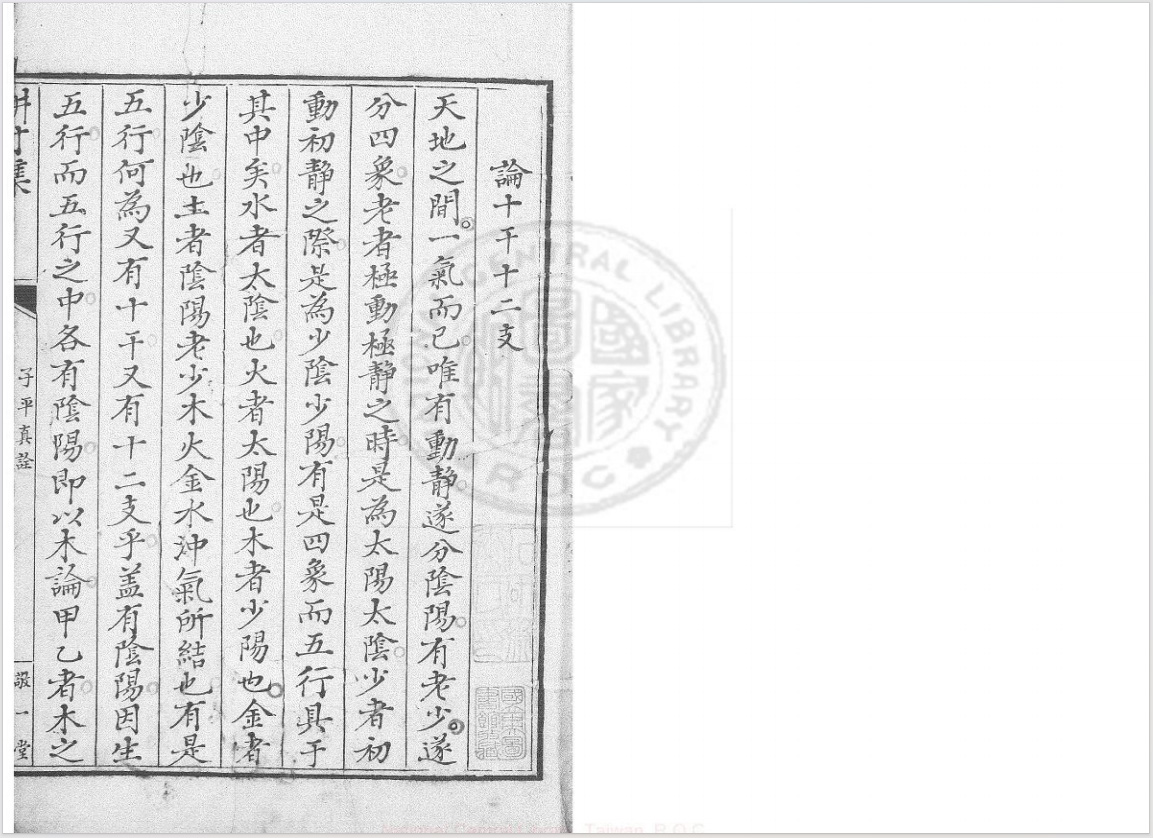 論十干十二支
天地之間一氣而已唯有動靜遂分陰陽有老少遂
分四象老者極動極靜之時是為太陽太陰少者初
動初靜之際是為少陰少陽有是四象而五行具于
其中矣水者太陰也火者太陽也木者少陽也金者
少陰也土者陰陽老少木火金水沖氣所結也有是
五行何為又有十干又有十二支乎盖有陰陽因生
五行而五行之中各有陰陽即以木論甲乙者木之
集
子平真詮
敬一堂
CENTRAL LIBRARY
R.O.C
國家圖書館
National Central Library, Taiwan, R.O.C